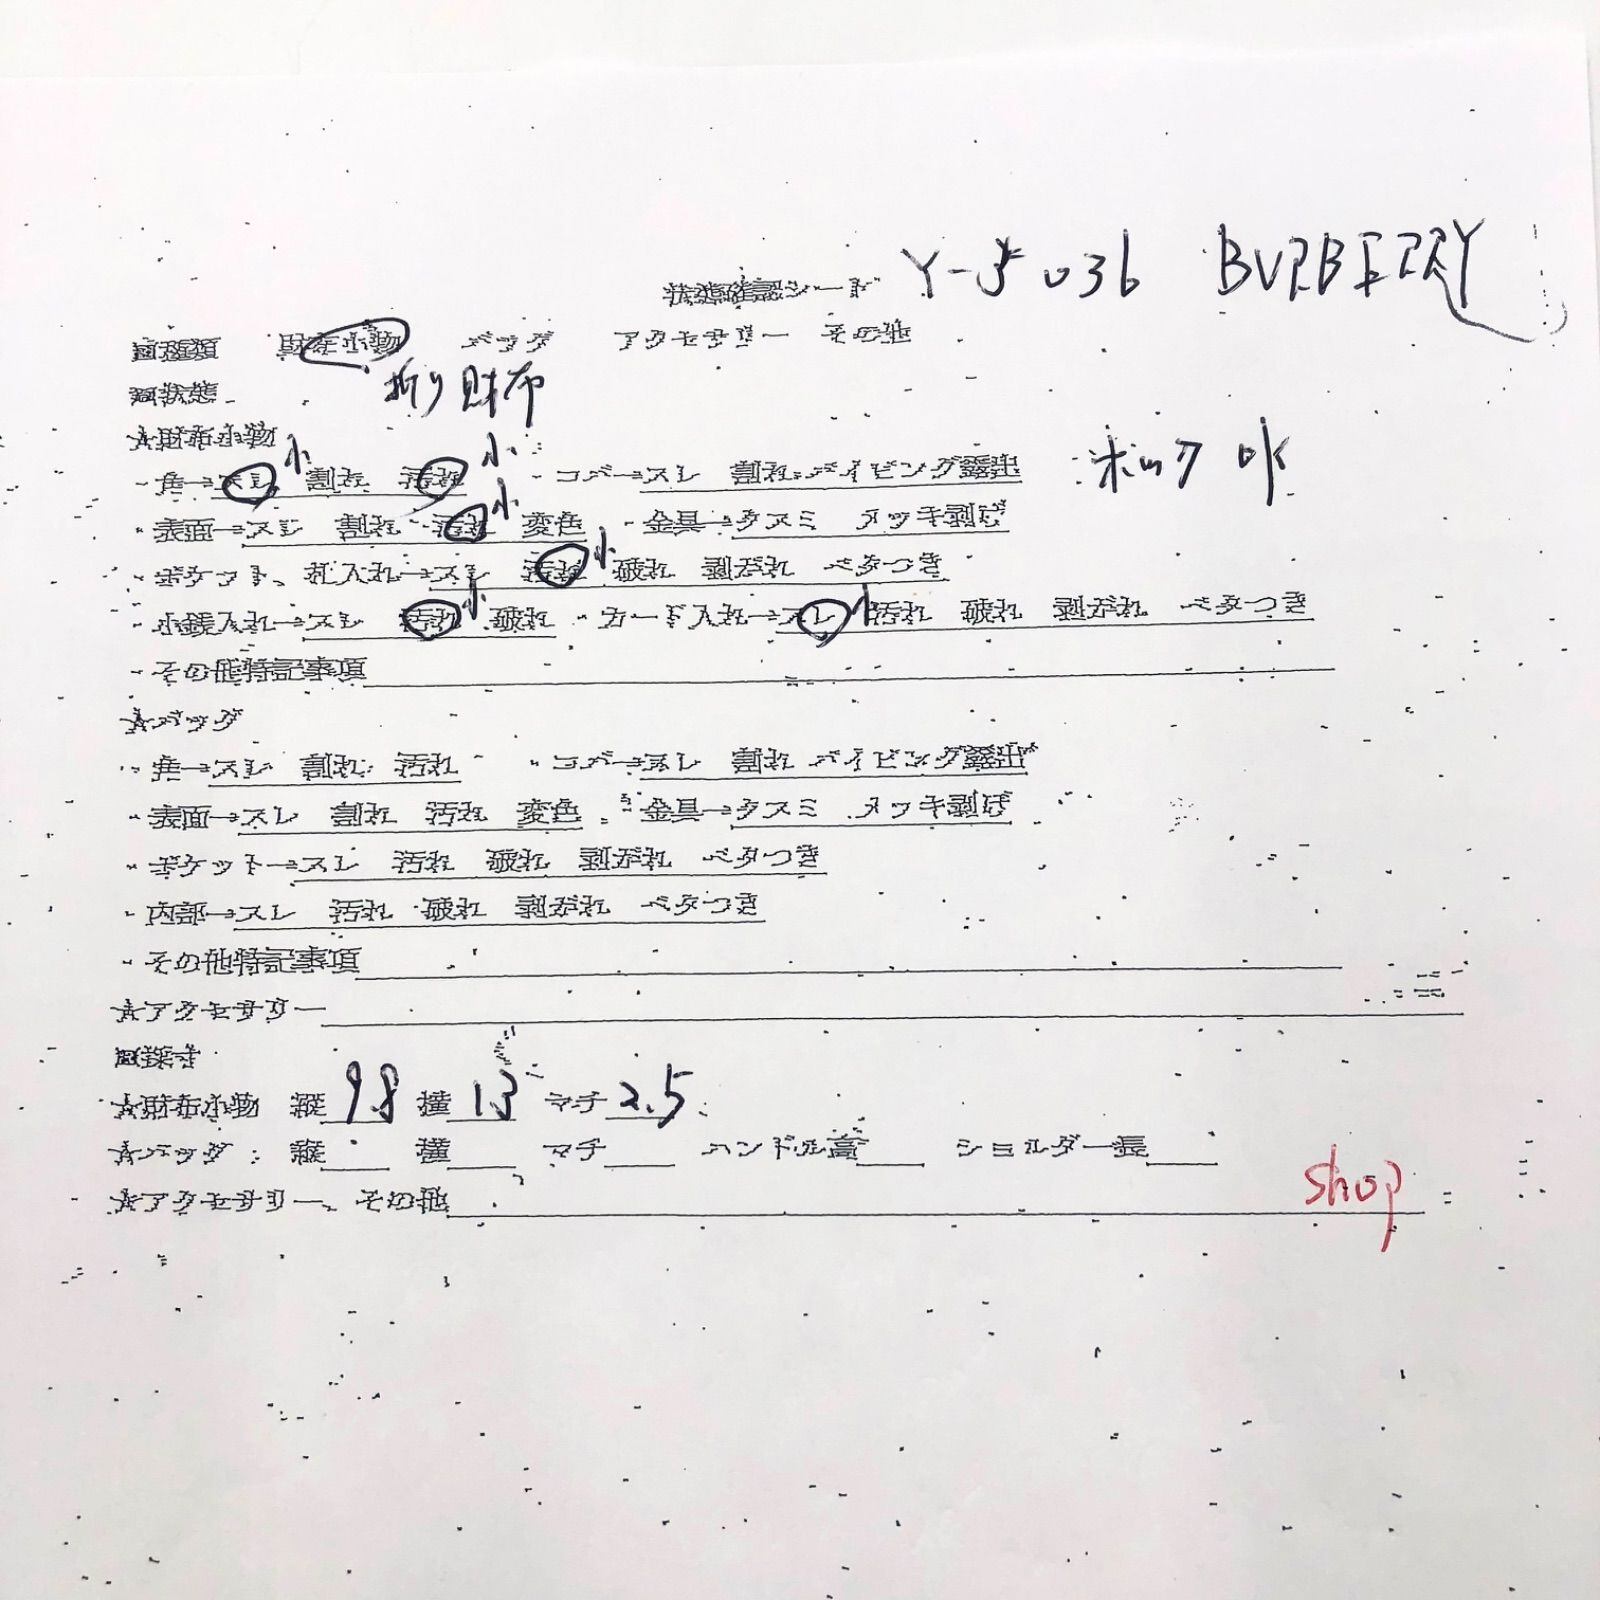 状態確認シート Y-5036 BURBERRY
■種類 財布小物 バッグ アクセサリー その他
■状態 折り財布
★財布小物
・角→スレ 小 割れ 汚れ 小 ・コバ→スレ 割れ パイピング露出 ホック OK
・表面→スレ 割れ 汚れ 小 変色 ・金具→クスミ メッキ剥げ
・ポケット、札入れ→スレ 汚れ 小 破れ 剥がれ ベタつき
・小銭入れ→スレ 汚れ 小 破れ ・カード入れ→スレ 小 汚れ 破れ 剥がれ ベタつき
・その他特記事項
★バッグ
・角→スレ 割れ 汚れ ・コバ→スレ 割れ パイピング露出
・表面→スレ 割れ 汚れ 変色 ・金具→クスミ メッキ剥げ
・ポケット→スレ 汚れ 破れ 剥がれ ベタつき
・内部→スレ 汚れ 破れ 剥がれ ベタつき
・その他特記事項
★アクセサリー
■採寸
★財布小物 縦 9.8 横 13 マチ 2.5
★バッグ: 縦 横 マチ ハンドル高 ショルダー長
★アクセサリー、その他
shop